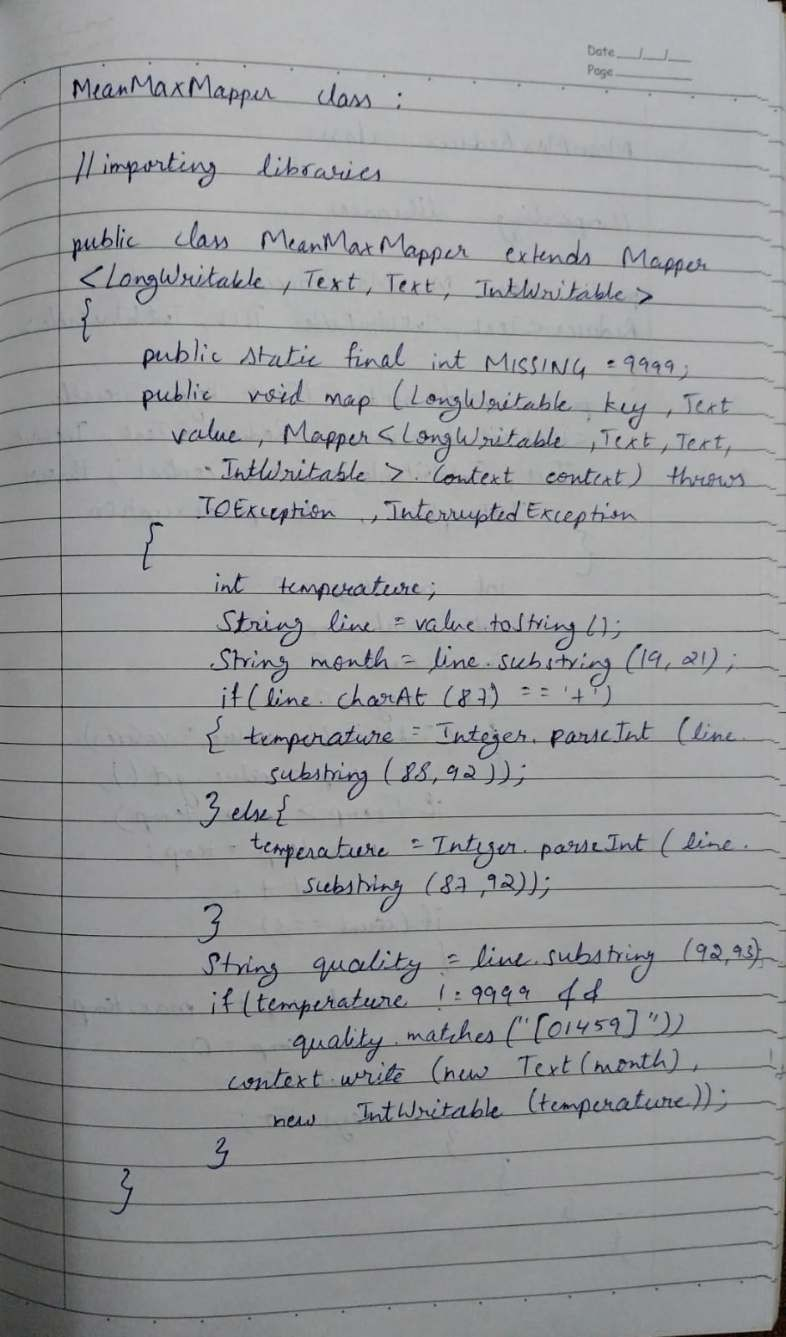 Date __/__/__
Page
MeanMaxMapper class :
//importing libraries
public class MeanMaxMapper extends Mapper
<LongWritable, Text, Text, IntWritable>
{
public static final int MISSING = 9999;
public void map (LongWritable key, Text
value, Mapper<LongWritable, Text, Text,
IntWritable>. Context context) throws
IOException, InterruptedException
{
int temperature;
String line = value.toString();
String month = line.substring (19, 21);
if(line.charAt (87) == '+')
{ temperature = Integer.parseInt (line.
substring (88,92));
} else{
temperature = Integer.parseInt (line.
substring (87,92));
}
String quality = line.substring (92,93)
if(temperature != 9999 &&
quality.matches("[01459]"))
context.write (new Text(month),
new IntWritable (temperature));
}
}